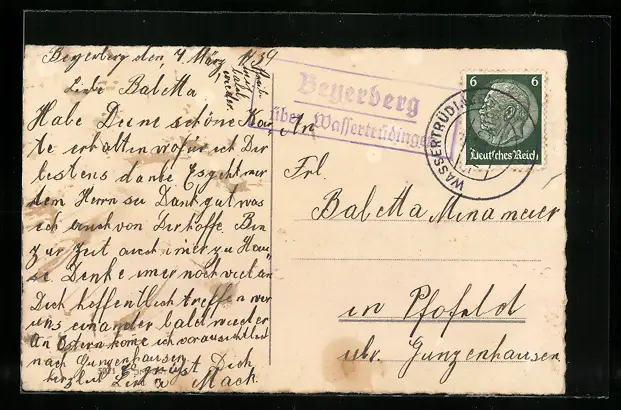 Beyerberg den 7 März 1939
Liebe Babetta
Habe Deine schöne Kar
te erhalten wofür ich Dir
bestens danke Es geht mir
dem Herrn sei Dank gut was
ich auch von Dir hoffe Bin
zur Zeit auch imer zu Hau
se Denke imer noch viel an
Dich hoffentlich treffen wir
uns einander bald wieder
An Ostern kome ich voraussichtlich
nach Gunzenhausen
Es grüst Dich
herzlich
bald
wieder
Beyerberg
über Wassertrüdingen
WASSERTRÜDINGEN
6 6
Deutsches Reich
An
Frl.
Babetta Minameier
in Pfofeld
üb. Gunzenhausen